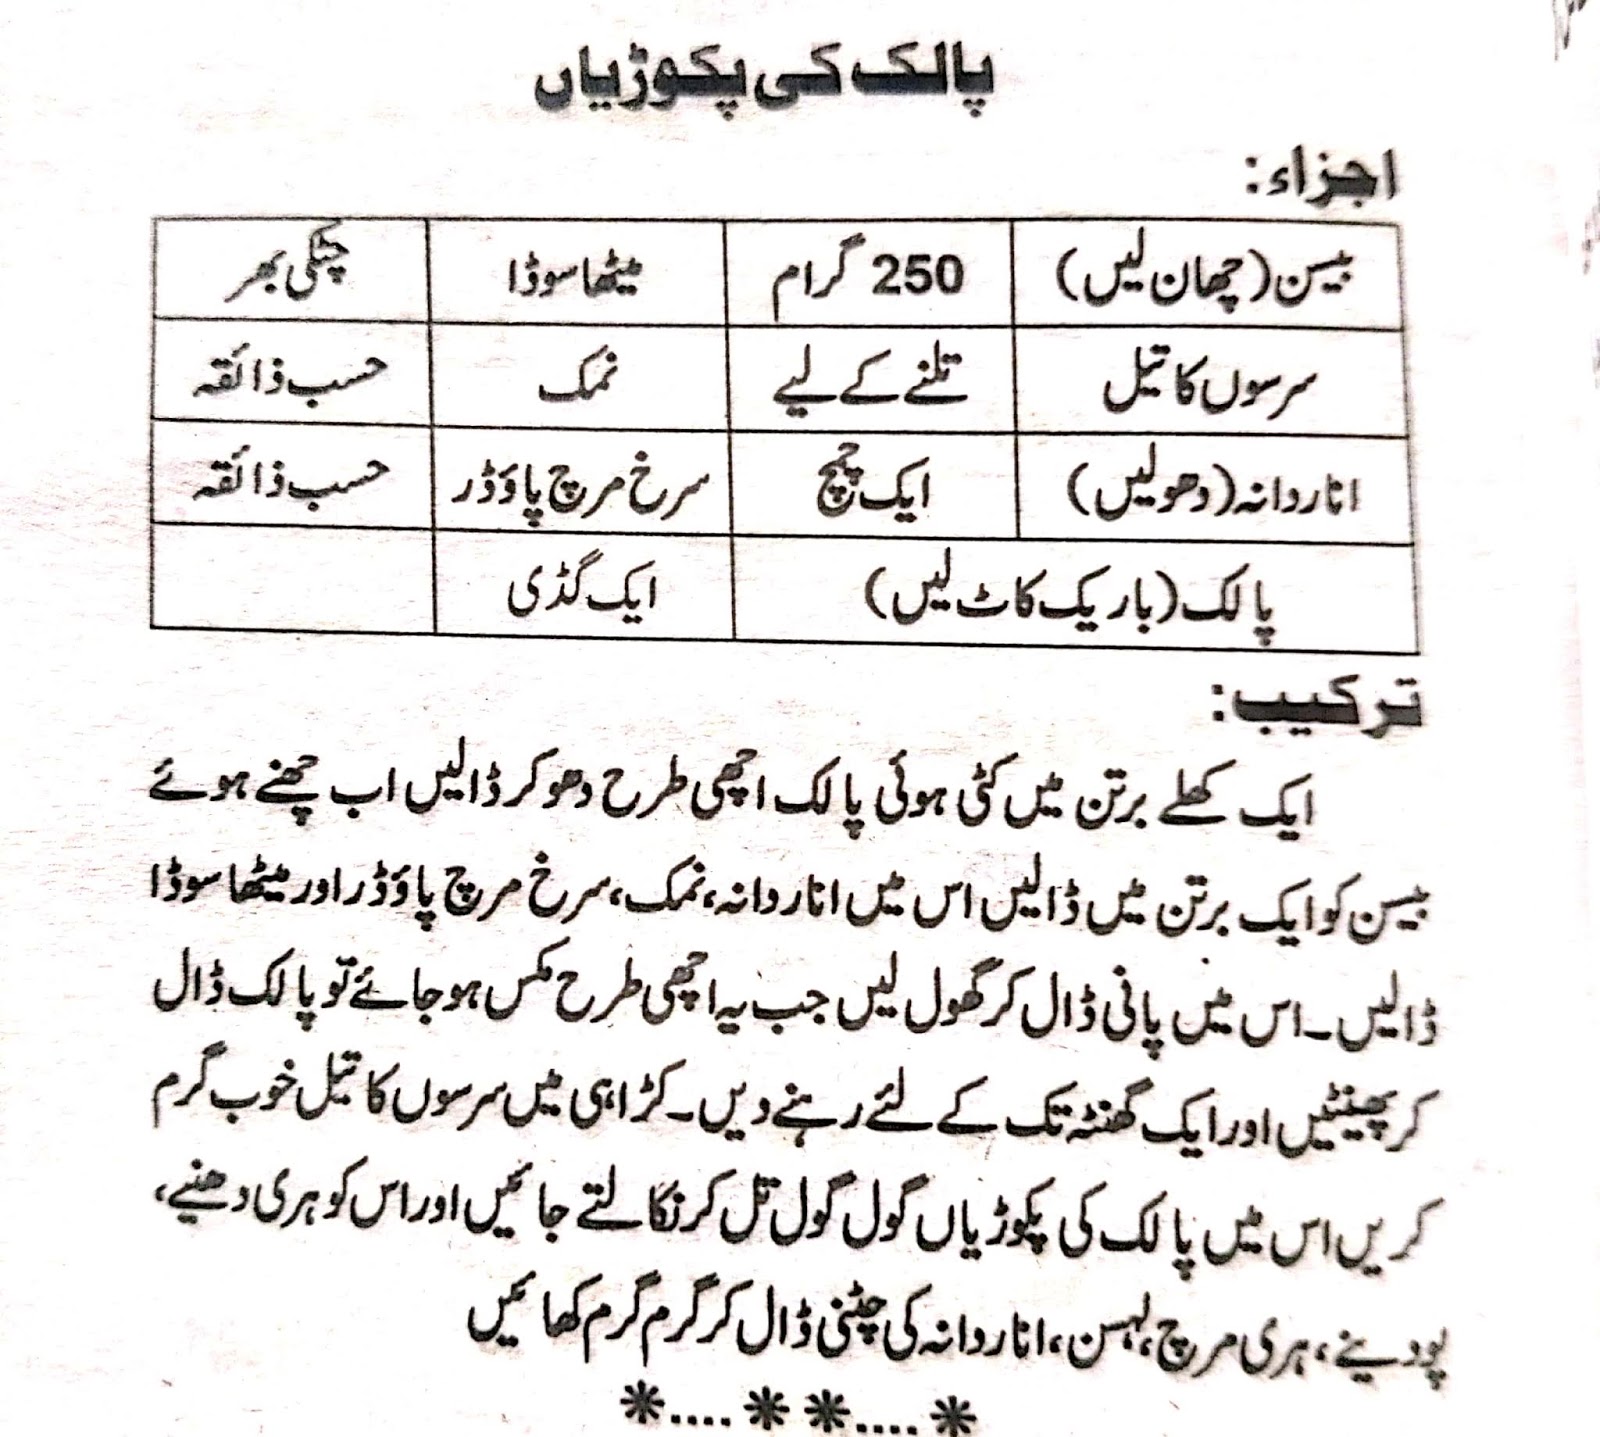 پالک کی پکوڑیاں
اجزاء:
بیسن (چھان لیں) 250 گرام میٹھا سوڈا چٹکی بھر
سرسوں کا تیل تلنے کے لیے نمک حسب ذائقہ
انار دانہ (دھو لیں) ایک چمچ سرخ مرچ پاؤڈر حسب ذائقہ
پالک (باریک کاٹ لیں) ایک گڈی
ترکیب:
ایک کھلے برتن میں کٹی ہوئی پالک اچھی طرح دھو کر ڈالیں اب چھنے ہوئے
بیسن کو ایک برتن میں ڈالیں اس میں انار دانہ، نمک، سرخ مرچ پاؤڈر اور میٹھا سوڈا
ڈالیں۔ اس میں پانی ڈال کر گھول لیں جب یہ اچھی طرح مکس ہو جائے تو پالک ڈال
کر پھینٹیں اور ایک گھنٹہ تک کے لئے رہنے دیں۔ کڑاہی میں سرسوں کا تیل خوب گرم
کریں اس میں پالک کی پکوڑیاں گول گول تل کر نکالتے جائیں اور اس کو ہری دھنیے،
پودینے، ہری مرچ، لہسن، انار دانہ کی چٹنی ڈال کر گرم گرم کھائیں
*....**....*